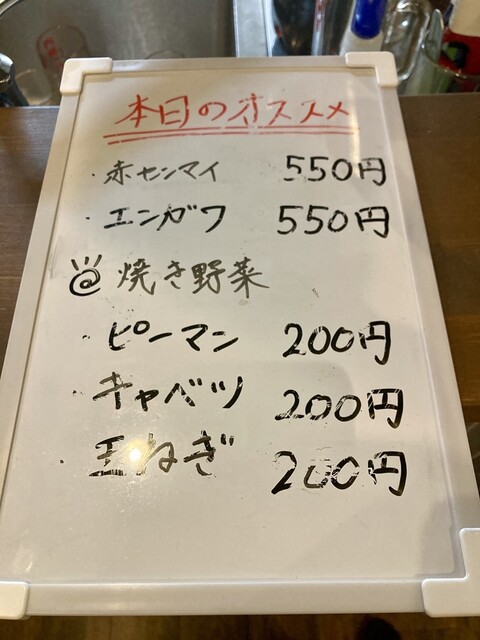 本日のオススメ
・赤センマイ 550円
・エンガワ 550円
焼き野菜
・ピーマン 200円
・キャベツ 200円
・玉ねぎ 200円